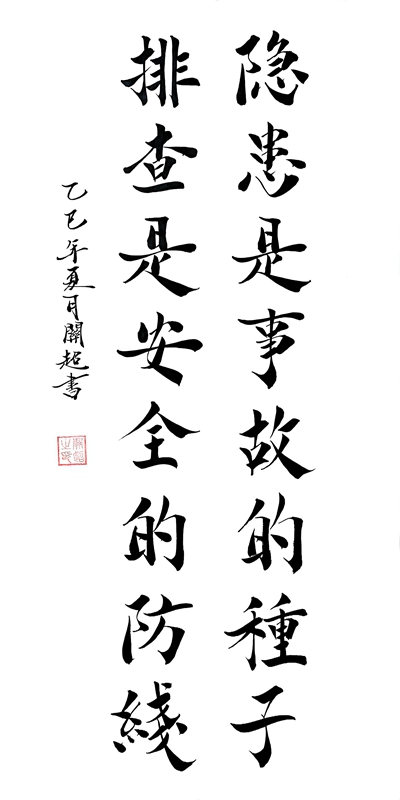 隐患是事故的種子
排查是安全的防綫
乙巳年夏月開超書